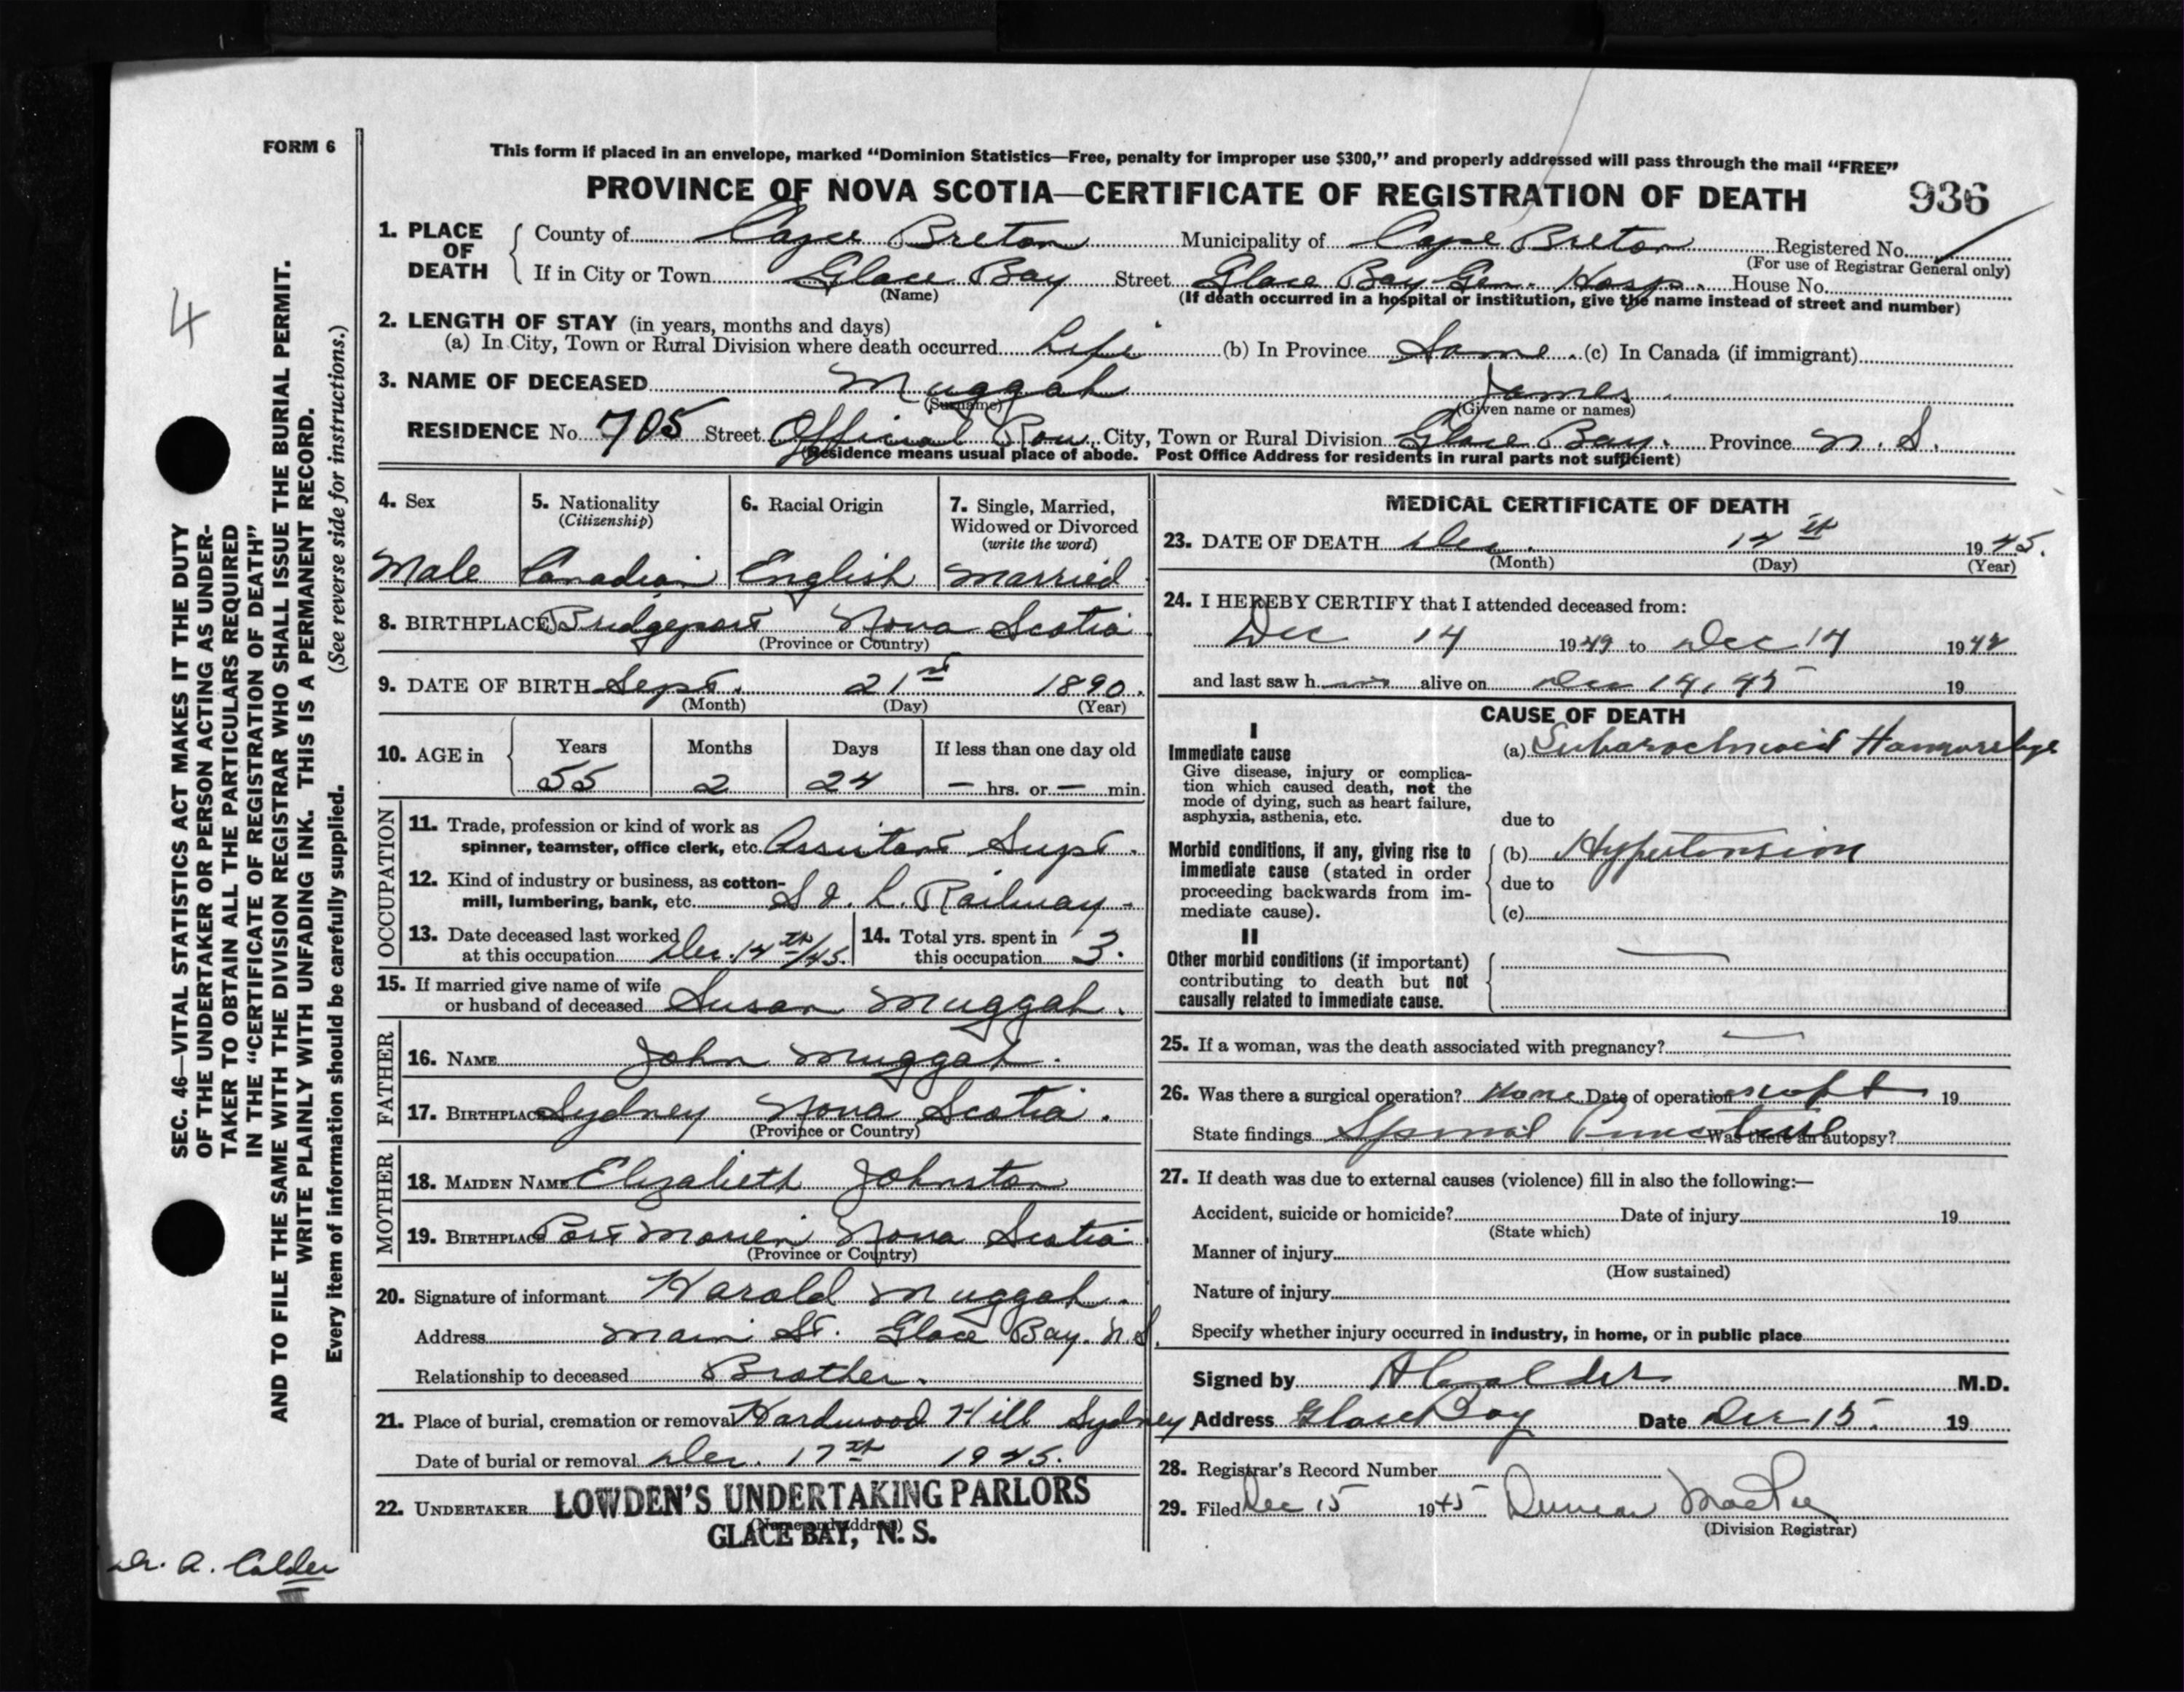 FORM 6
This form if placed in an envelope, marked "Dominion Statistics—Free, penalty for improper use $300," and properly addressed will pass through the mail "FREE"
PROVINCE OF NOVA SCOTIA—CERTIFICATE OF REGISTRATION OF DEATH 936
1. PLACE OF DEATH County of Cape Breton Municipality of Cape Breton Registered No.
(For use of Registrar General only)
If in City or Town Glace Bay Street Glace Bay Gen. Hosp. House No.
(Name) (If death occurred in a hospital or institution, give the name instead of street and number)
2. LENGTH OF STAY (in years, months and days)
(a) In City, Town or Rural Division where death occurred Life (b) In Province Same. (c) In Canada (if immigrant)
3. NAME OF DECEASED Muggah James.
(Surname) (Given name or names)
RESIDENCE No. 705 Street Official Row City, Town or Rural Division Glace Bay. Province N. S.
(Residence means usual place of abode. Post Office Address for residents in rural parts not sufficient)
4. Sex
Male
5. Nationality
(Citizenship)
Canadian
6. Racial Origin
English
7. Single, Married,
Widowed or Divorced
(write the word)
Married
8. BIRTHPLACE Bridgeport Nova Scotia
(Province or Country)
9. DATE OF BIRTH Sept. 21st 1890.
(Month) (Day) (Year)
10. AGE in Years Months Days If less than one day old
55 2 24 — hrs. or — min.
OCCUPATION
11. Trade, profession or kind of work as
spinner, teamster, office clerk, etc. Assistant Supt.
12. Kind of industry or business, as cotton-
mill, lumbering, bank, etc. S & L. Railway -
13. Date deceased last worked
at this occupation Dec. 14th/45.
14. Total yrs. spent in
this occupation 3.
15. If married give name of wife
or husband of deceased Susan Muggah.
FATHER
16. NAME John Muggah.
17. BIRTHPLACE Sydney Nova Scotia.
(Province or Country)
MOTHER
18. MAIDEN NAME Elizabeth Johnston
19. BIRTHPLACE Port Morien Nova Scotia
(Province or Country)
20. Signature of informant Harold Muggah.
Address Main St. Glace Bay. N.S.
Relationship to deceased Brother.
21. Place of burial, cremation or removal Hardwood Hill Sydney
Date of burial or removal Dec. 17th 1945.
22. UNDERTAKER LOWDEN'S UNDERTAKING PARLORS
(Name and address)
GLACE BAY, N. S.
MEDICAL CERTIFICATE OF DEATH
23. DATE OF DEATH Dec. 14th 1945.
(Month) (Day) (Year)
24. I HEREBY CERTIFY that I attended deceased from:
Dec 14 1949 to Dec 14 1942
and last saw h alive on Dec 14, 45 19
CAUSE OF DEATH
I
Immediate cause
Give disease, injury or complica-
tion which caused death, not the
mode of dying, such as heart failure,
asphyxia, asthenia, etc.
(a) Subarachnoid Hemorrhage
due to
Morbid conditions, if any, giving rise to
immediate cause (stated in order
proceeding backwards from im-
mediate cause).
(b) Hypertension
due to
(c)
II
Other morbid conditions (if important)
contributing to death but not
causally related to immediate cause.
25. If a woman, was the death associated with pregnancy? —
26. Was there a surgical operation? None Date of operation except 19
State findings Spinal Puncture Was there an autopsy?
27. If death was due to external causes (violence) fill in also the following:—
Accident, suicide or homicide? Date of injury 19
(State which)
Manner of injury
(How sustained)
Nature of injury
Specify whether injury occurred in industry, in home, or in public place
Signed by A Calder M.D.
Address Glace Bay Date Dec 15. 19
28. Registrar's Record Number
29. Filed Dec 15 1945 Duncan MacPhee
(Division Registrar)
4
SEC. 46—VITAL STATISTICS ACT MAKES IT THE DUTY
OF THE UNDERTAKER OR PERSON ACTING AS UNDER-
TAKER TO OBTAIN ALL THE PARTICULARS REQUIRED
IN THE "CERTIFICATE OF REGISTRATION OF DEATH"
AND TO FILE THE SAME WITH THE DIVISION REGISTRAR WHO SHALL ISSUE THE BURIAL PERMIT.
WRITE PLAINLY WITH UNFADING INK. THIS IS A PERMANENT RECORD.
Every item of information should be carefully supplied. (See reverse side for instructions.)
Dr. A. Calder